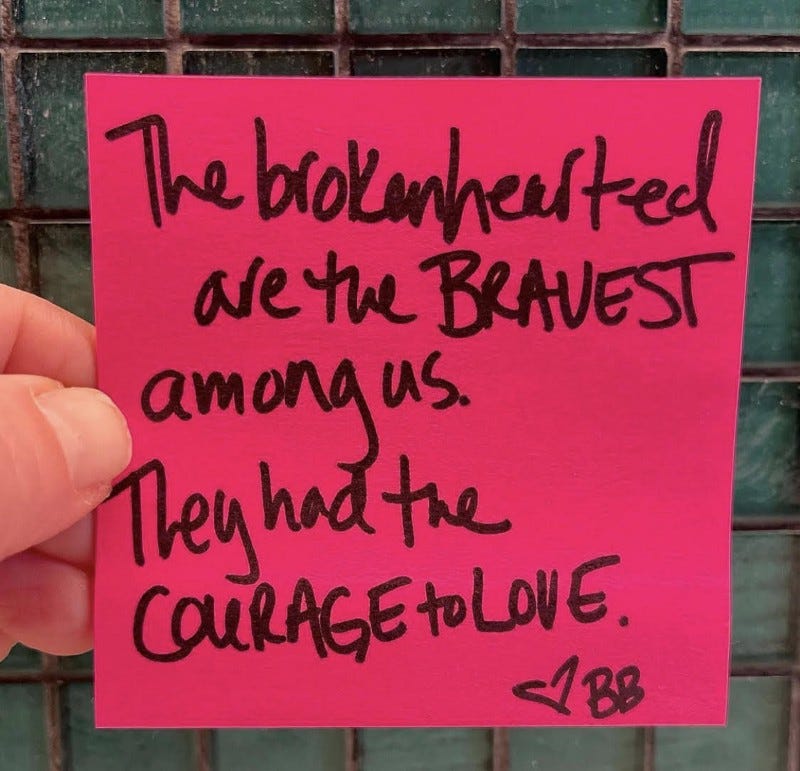 The brokenhearted
are the BRAVEST
among us.
They had the
COURAGE to LOVE.
♡ BB